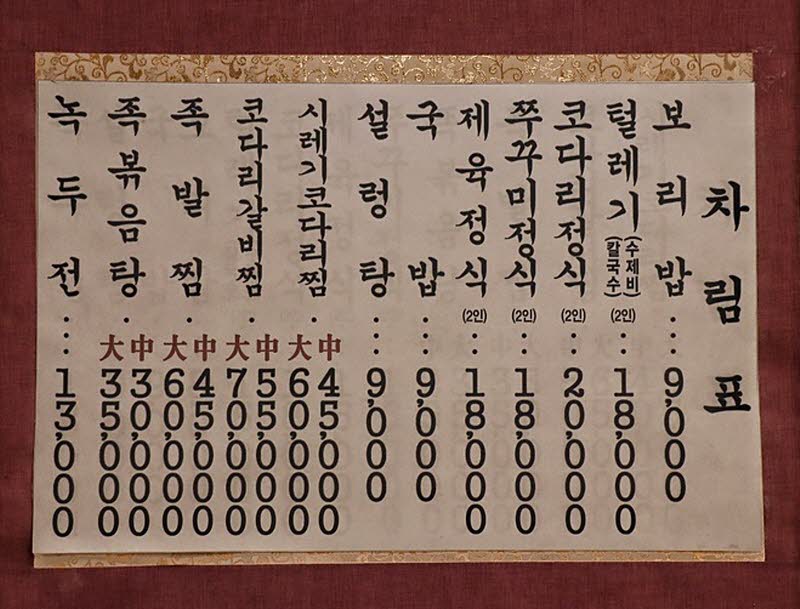 차림표
보리밥 ··· 9,000
털레기(수제비 칼국수)(2인) ·· 18,000
코다리정식(2인) ·· 20,000
쭈꾸미정식(2인) ·· 18,000
제육정식(2인) ·· 18,000
국밥 ··· 9,000
설렁탕 ··· 9,000
시레기코다리찜 · 中 45,000 大 60,000
코다리갈비찜 · 中 55,000 大 70,000
족발찜 · 中 45,000 大 60,000
족볶음탕 · 中 30,000 大 35,000
녹두전 ··· 13,000